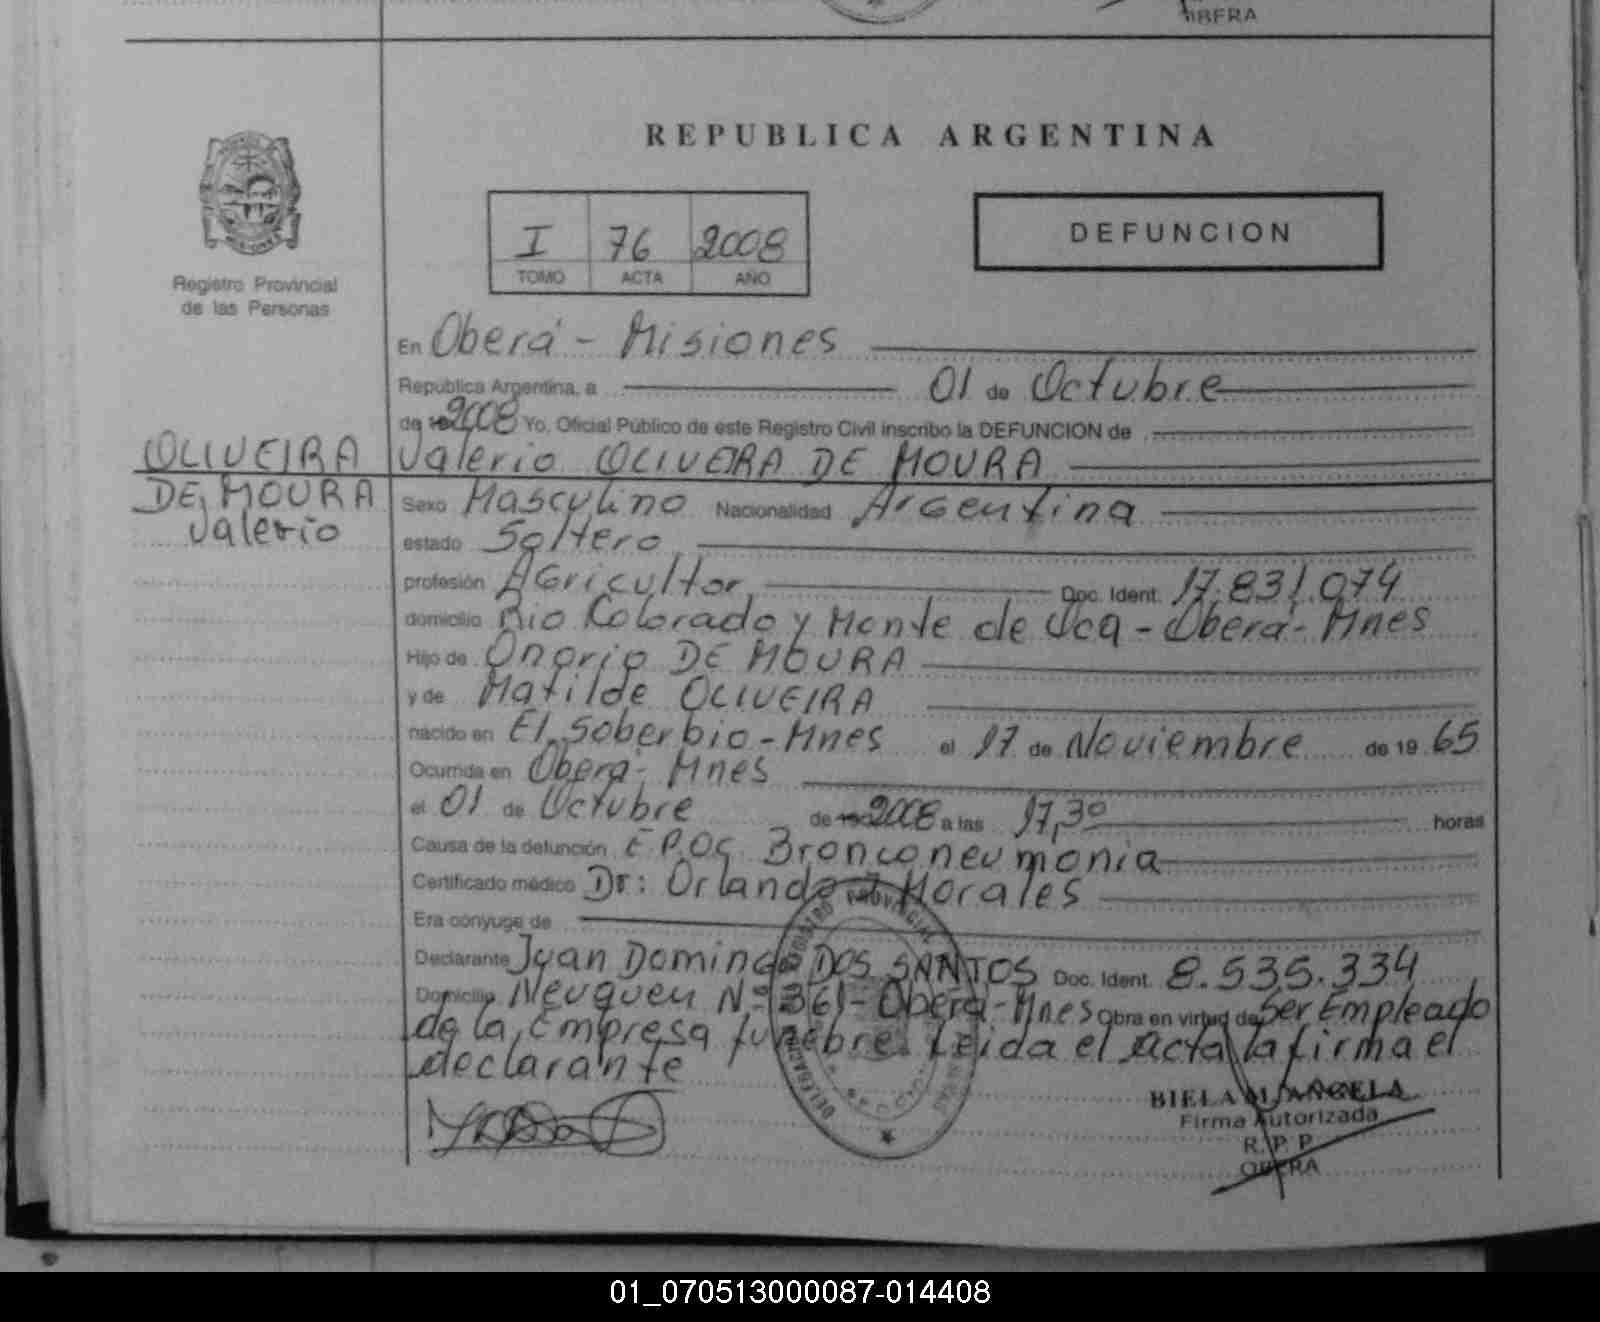 OBERA
REPUBLICA ARGENTINA
I 76 2008
TOMO ACTA AÑO
DEFUNCION
Registro Provincial
de las Personas
En Oberá - Misiones
República Argentina, a 01 de Octubre
de 2008 Yo, Oficial Público de este Registro Civil inscribo la DEFUNCION de
OLIVEIRA
DE MOURA
Valerio
Valerio OLIVEIRA DE MOURA
Sexo Masculino Nacionalidad Argentina
estado Soltero
profesión Agricultor Doc. Ident. 17.831.074
domicilio Rio Colorado y Monte de Oca - Oberá - Mnes
Hijo de Onorio DE MOURA
y de Matilde OLIVEIRA
nacido en El Soberbio - Mnes el 17 de Noviembre de 19 65
Ocurrida en Oberá - Mnes
el 01 de Octubre de 2008 a las 17,30 horas
Causa de la defunción E.P.O.C. Bronconeumonia
Certificado médico Dr: Orlando J Morales
Era cónyuge de
Declarante Juan Domingo DOS SANTOS Doc. Ident. 8.535.334
Domicilio Neuquen N° 361 - Oberá - Mnes Obra en virtud de Ser Empleado
de la Empresa funebre. Leida el acta la firma el
declarante
BIELA M. ANGELA
Firma Autorizada
R. P. P.
OBERA
01_070513000087-014408